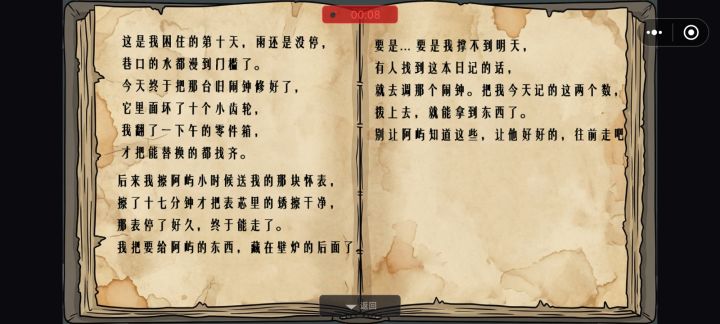 00:08
这是我困住的第十天，雨还是没停，
巷口的水都漫到门槛了。
今天终于把那台旧闹钟修好了，
它里面坏了十个小齿轮，
我翻了一下午的零件箱，
才把能替换的都找齐。
后来我擦阿屿小时候送我的那块怀表，
擦了十七分钟才把表芯里的锈擦干净，
那表停了好久，终于能走了。
我把要给阿屿的东西，藏在壁炉的后面了
要是… 要是我撑不到明天，
有人找到这本日记的话，
就去调那个闹钟。把我今天记的这两个数，
拨上去，就能拿到东西了。
别让阿屿知道这些，让他好好的，往前走吧
返回